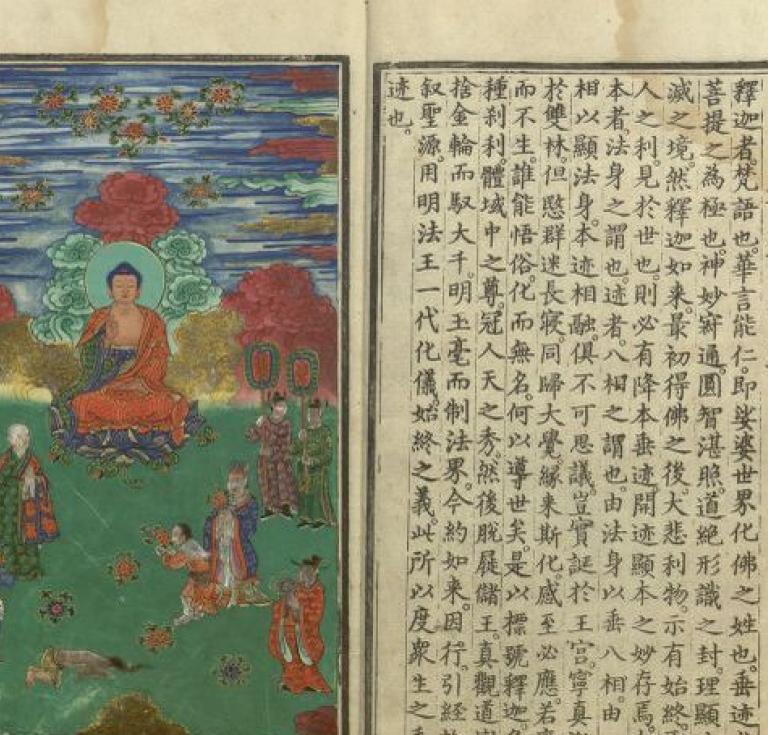 釋迦者。梵語也。華言能仁。即娑婆世界化佛之姓也。垂迹
菩提之為極也。神妙寂通。圓智湛照。道絕形識之封。理顯
滅之境。然釋迦如來。最初得佛之後。大悲利物。示有始終。
人之利。見於世也。則必有降本垂迹。開迹顯本之妙存焉。
本者。法身之謂也。迹者。八相之謂也。由法身以垂八相。由
相以顯法身。本迹相融。俱不可思議。豈實誕於王宮。寧真
於雙林。但愍群迷長寢。同歸大覺。緣來斯化。感至必應。若
而不生。誰能悟俗。化而無名。何以導世矣。是以摽號釋迦。
種剎利。體域中之尊。冠人天之秀。然後脫屣儲王。真觀道
捨金輪而馭大千。明玉毫而制法界。今約如來。因行。引經
叙聖源。用明法王一代化儀。始終之義。此所以度衆生之
迹也。